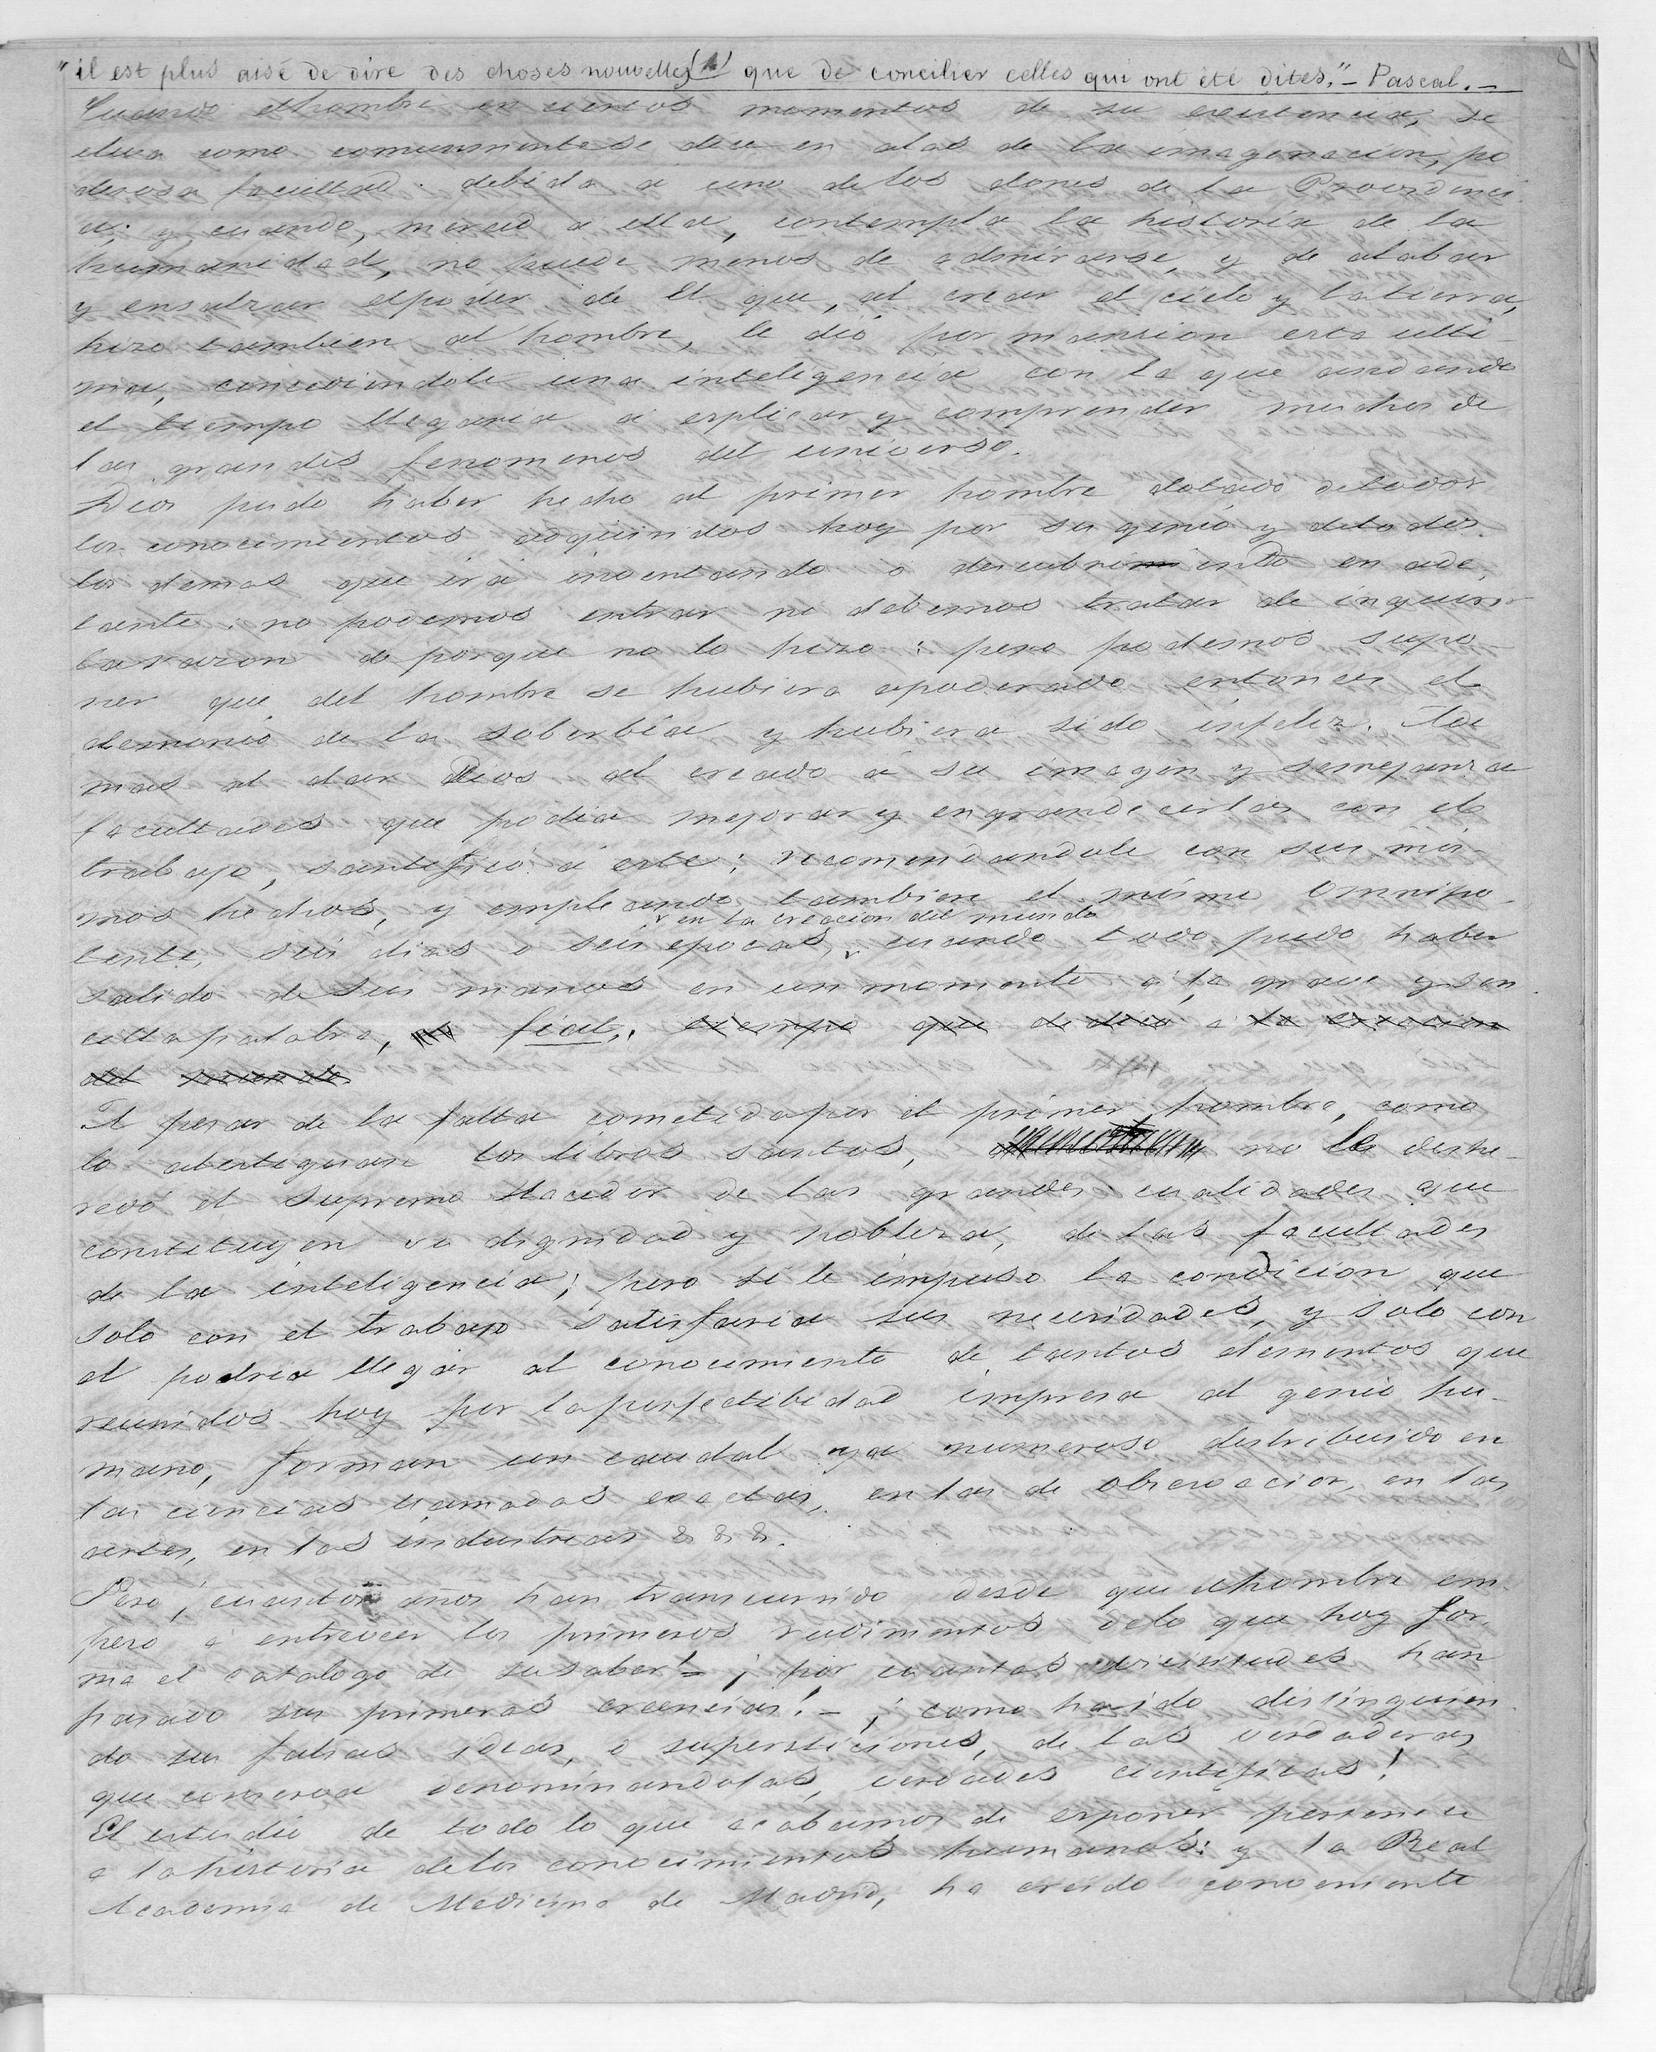 "il est plus aisé de dire des choses nouvelles (1) que de concilier celles qui ont été dites." – Pascal. –
Cuando el hombre en ciertos momentos de su existencia, se
eleva como comunmente se dice en alas de la imaginacion, po
derosa facultad debida a uno de los dones de la Providenci
a; y cuando, merced a ella, contempla la historia de la
humanidad, no puede menos de admirarse, y de alabar
y ensalzar el poder de El que, al crear el cielo y la tierra,
hizo tambien al hombre, le dió por mansion esta ulti-
ma, concediendole una inteligencia con la que andando
el tiempo llegaria a esplicar y comprender muchos de
los grandes fenomenos del universo.
Dios pudo haber hecho al primer hombre dotado de todos
los conocimientos adquiridos hoy por su genio y de todos
los demas que irá inventando o descubriendo en ade-
lante: no podemos entrar ni debemos tratar de inquirir
la razon de porque no lo hizo: pero podemos supo-
ner que del hombre se hubiera apoderado entonces el
demonio de la soberbia y hubiera sido infeliz. Ade
mas al dar Dios al creado a su imagen y semejanza
facultades que podia mejorar y engrandecerlas con el
trabajo, santificó a este; recomendandole con sus mis-
mos hechos, y empleando tambien el mismo Omnipo-
v en la creacion del mundo
tente, seis dias o seis epocas, v cuando todo pudo haber
salido de sus manos en un momento a la grave y sen
cilla palabra, fiat. tiempo que dedicó a la creacion
del mundo
A pesar de la falta cometida por el primer hombre, como
lo atestiguan los libros santos, no le deshe-
redó el Supremo Hacedor de las grandes cualidades que
constituyen su dignidad y nobleza, de las facultades
de la inteligencia; pero si le impuso la condicion que
solo con el trabajo satisfaria sus necesidades, y solo con
el podria llegar al conocimiento de tantos elementos que
reunidos hoy por la perfectibidad impresa al genio hu-
mano, forman un caudal ya numeroso distribuido en
las ciencias llamadas exactas, en las de observacion, en las
artes, en las industrias & & &.
Pero ¡ cuantos años han transcurrido desde que el hombre em-
pezo a entreveer los primeros rudimentos de lo que hoy for-
ma el catalogo de su saber! – ¡ por cuantas vicisitudes han
pasado sus primeras creencias! – ¡ como ha ido distinguien
do sus falsas ideas, o supersticiones, de las verdaderas
que conserva denominandolas, verdades cientificas!
El estudio de todo lo que acabamos de esponer pertenece
a la historia de los conocimientos humanos: y la Real
Academia de Medicina de Madrid, ha creido conveniente